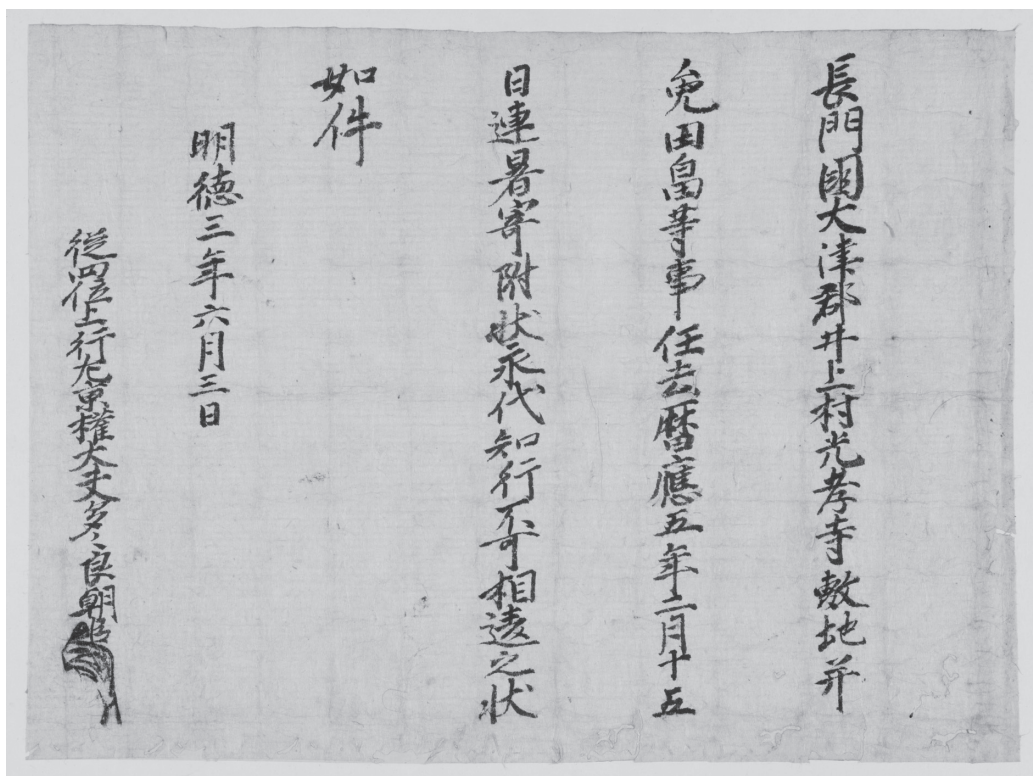 長門國大津郡井上村光孝寺敷地并
免田畠等事任去暦應五年二月十五
日連署寄附状永代知行不可相違之状
如件
明徳三年六月三日
従四位上行左京権大夫多々良朝臣